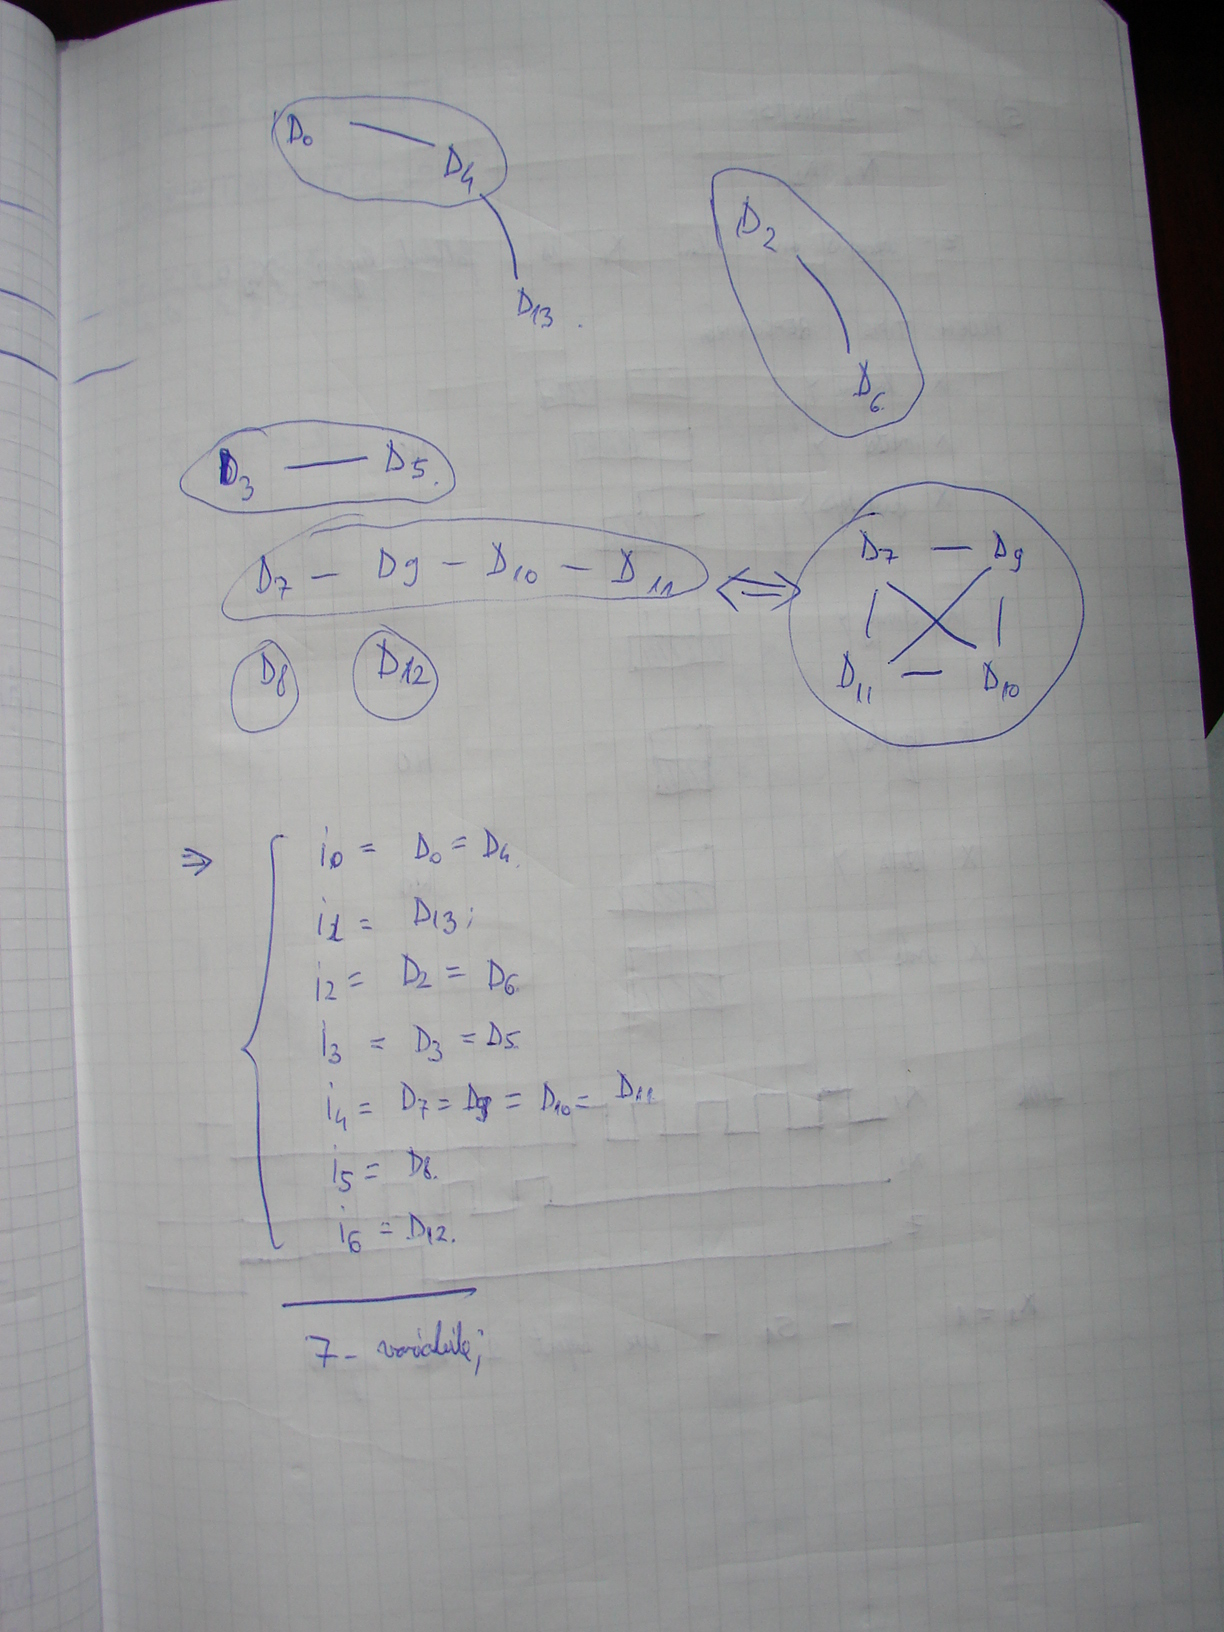 D0 — D4
D13.
D2
D6
D3 — D5.
D7 — D9 — D10 — D11 ⟺
D7 — D9
D11 — D10
D8 D12
⇒
i0 = D0 = D4.
i1 = D13;
i2 = D2 = D6
i3 = D3 = D5
i4 = D7 = D9 = D10 = D11
i5 = D8.
i6 = D12.
7 -